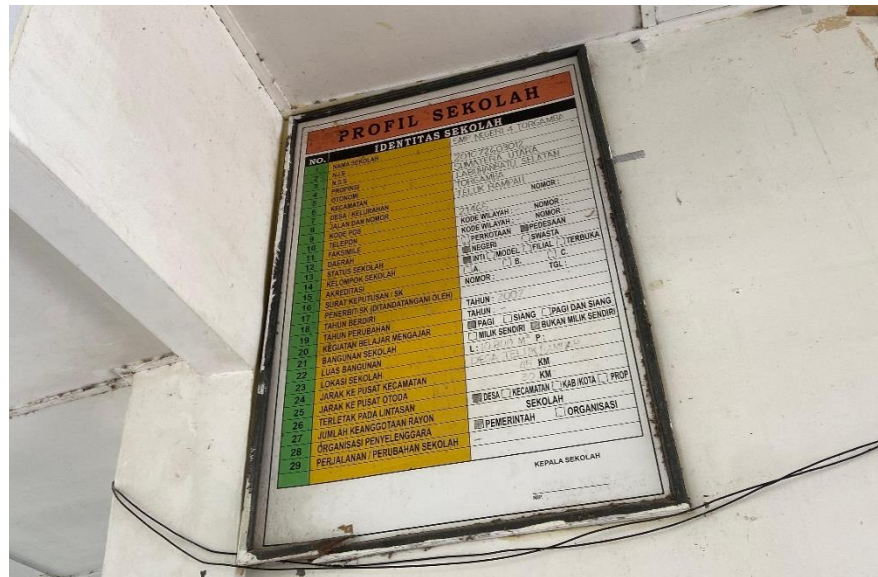 PROFIL SEKOLAH
IDENTITAS SEKOLAH
NO.
1 NAMA SEKOLAH SMP NEGERI 4 TORGAMBA
2 N.I.S
3 N.S.S
4 PROPINSI SUMATERA UTARA
5 OTONOMI LABUHANBATU SELATAN
6 KECAMATAN TORGAMBA
7 DESA / KELURAHAN TELUK RAMPAH
8 JALAN DAN NOMOR NOMOR :
9 KODE POS
10 TELEPON KODE WILAYAH : NOMOR :
11 FAKSIMILE KODE WILAYAH : NOMOR :
12 DAERAH PERKOTAAN PEDESAAN
13 STATUS SEKOLAH NEGERI SWASTA
14 KELOMPOK SEKOLAH INTI MODEL FILIAL TERBUKA
15 AKREDITASI A. B. C.
16 SURAT KEPUTUSAN / SK NOMOR : TGL :
17 PENERBIT SK (DITANDATANGANI OLEH)
18 TAHUN BERDIRI TAHUN : 2007
19 TAHUN PERUBAHAN TAHUN :
20 KEGIATAN BELAJAR MENGAJAR PAGI SIANG PAGI DAN SIANG
21 BANGUNAN SEKOLAH MILIK SENDIRI BUKAN MILIK SENDIRI
22 LUAS BANGUNAN L : P :
23 LOKASI SEKOLAH DESA TELUK RAMPAH
24 JARAK KE PUSAT KECAMATAN KM
25 JARAK KE PUSAT OTODA KM
26 TERLETAK PADA LINTASAN DESA KECAMATAN KAB/KOTA PROP
27 JUMLAH KEANGGOTAAN RAYON SEKOLAH
28 ORGANISASI PENYELENGGARA PEMERINTAH ORGANISASI
29 PERJALANAN / PERUBAHAN SEKOLAH
KEPALA SEKOLAH
NIP.